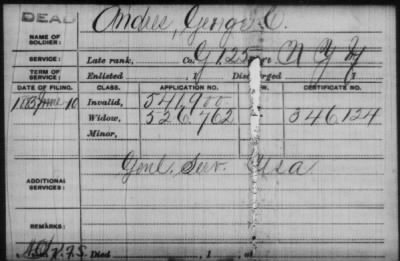 DEAD
NAME OF SOLDIER: Andree, George C.
SERVICE: Late rank, Co. G 125 N Y
TERM OF SERVICE: Enlisted , 1 Discharged , 1
DATE OF FILING. CLASS. APPLICATION NO. CERTIFICATE NO.
June 10 Invalid, 541,900
Widow, 526,762 346,124
Minor,
ADDITIONAL SERVICES: Genl. Serv. USA
REMARKS:
Died , 1 , at